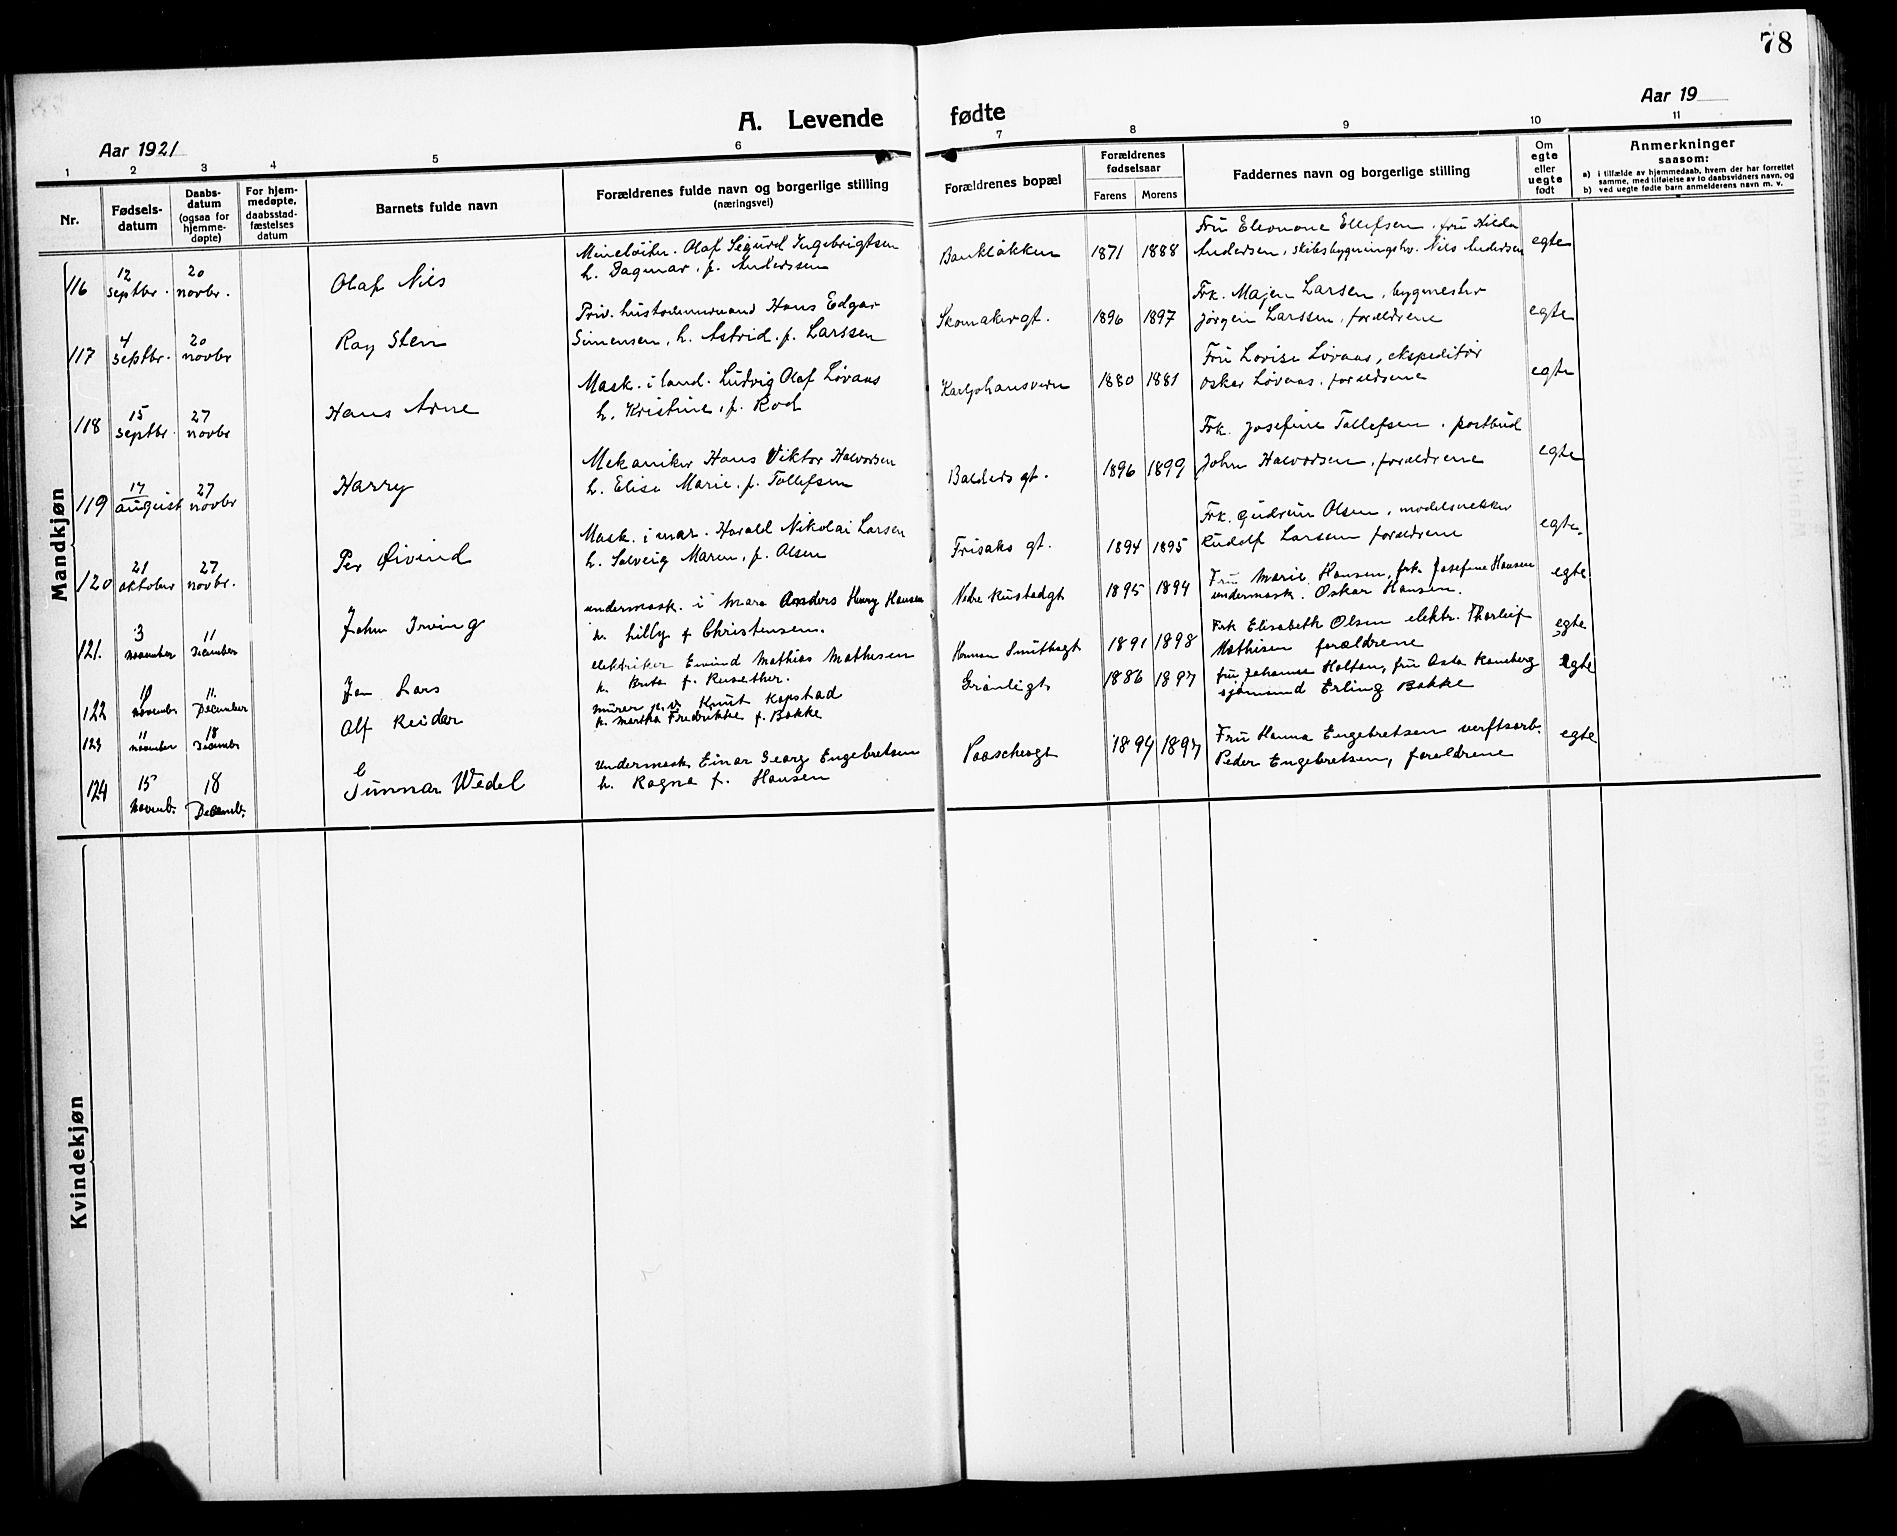 78
A. Levende fødte
Aar 1921
Aar 19
1 2 3 4 5 6 7 8 9 10 11
Nr.
Fødsels-
datum
Daabs-
datum
(ogsaa for
hjemme-
døpte)
For hjem-
medøpte,
daabsstad-
fæstelses
datum
Barnets fulde navn
Forældrenes fulde navn og borgerlige stilling
(næringsvei)
Forældrenes bopæl
Forældrenes
fødselsaar
Farens Morens
Faddernes navn og borgerlige stilling
Om
egte
eller
uegte
født
Anmerkninger
saasom:
a) i tilfælde av hjemmedaab, hvem der har forrettet
samme, med tilføielse av to daabsvidners navn, og
b) ved uegte fødte barn anmelderens navn m. v.
Mandkjøn
116 12 septbr. 20 novbr. Olaf Nils
Olaf Sigurd Ingebrigtsen
h. Dagmar, f. Anderssen
Bankløkken 1871 1888
Fru Eleonone Ellefsen, fru Hilda
Andersen, skibsbygningsarb. Nils Andersen
egte
117 4 septbr. 20 novbr Ray Stein
Hans Edgar
Simensen, h. Astrid, f. Larssen
Skomakergt. 1896 1897
Frk. Majen Larsen, bygmester
Jörgen Larssen, forældrene
egte
118 15 septbr. 27 novbr Hans Arne
Mask. i land. Ludvig Olaf Løvaas
h. Kristine, f. Rod
Karljohansvern 1880 1881
Fru Lovise Løvaas, ekspeditør
Oskar Løvaas, forældrene
egte
119 17 august 27 novbr Harry
Mekaniker Hans Viktor Halvorsen
h. Elise Marie, f. Tollefsen
Balders gt. 1896 1899
Frk. Josefine Tollefsen, postbud
John Halvorsen, forældrene
egte
120 21 oktober 27 novbr. Per Øivind
Mask. i mar. Harald Nikolai Larsen
h. Solveig Maren, f. Olsen
Frisaks gt. 1894 1895
Frk. Gudrun Olsen, modelsnekker
Rudolf Larsen forældrene
egte.
121. 3 november 11 December John Irving
undermask. i Mare Anders Henry Hansen
h. Lilly f Christensen.
Nedre Kustadgt 1895 1894
Fru Marie Hansen, frk. Josefine Hansen
undermask. Oskar Hansen.
egte
122 10 november 11. December Jan Lars
elektriker Eivind Mathias Mathisen
h. Bruta f. Rusether.
Herman Smithsgt 1891 1898
Frk Elisabeth Olsen elektr. Thorleif
Mathisen forældrene
egte
123 11 november 18 December Alf Reidar
murer Knut Kopstad
h. Martha Fredrikke f. Bakke
Grønligt 1886 1897
fru Johanne Holtan, fru Asta Ramberg
sjømand Erling Bakke
egte
124 15 novemb. 18 Decemb. Gunnar Wedel
Undermask. Einar Georg Engebretsen
h. Ragna f. Hansen
Paaschesgt 1894 1897
Fru Hanna Engebretsen verftsarb.
Peder Engebretsen, forældrene
egte
Kvindekjøn